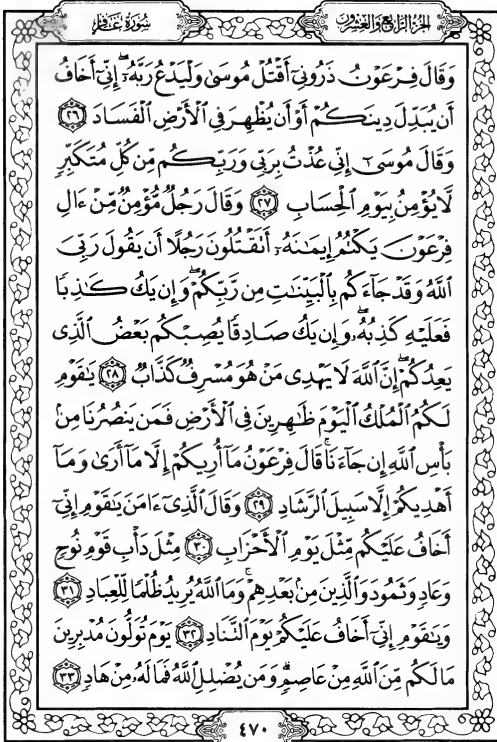 سُورَةُ غَافِرٍ
الجُزْءُ الرَّابِعُ وَالعِشْرُونَ
وَقَالَ فِرْعَوْنُ ذَرُونِىٓ أَقْتُلْ مُوسَىٰ وَلْيَدْعُ رَبَّهُۥٓ ۖ إِنِّىٓ أَخَافُ
أَن يُبَدِّلَ دِينَكُمْ أَوْ أَن يُظْهِرَ فِى ٱلْأَرْضِ ٱلْفَسَادَ ٢٦
وَقَالَ مُوسَىٰٓ إِنِّى عُذْتُ بِرَبِّى وَرَبِّكُم مِّن كُلِّ مُتَكَبِّرٍ
لَّا يُؤْمِنُ بِيَوْمِ ٱلْحِسَابِ ٢٧ وَقَالَ رَجُلٌ مُّؤْمِنٌ مِّنْ ءَالِ
فِرْعَوْنَ يَكْتُمُ إِيمَٰنَهُۥٓ أَتَقْتُلُونَ رَجُلًا أَن يَقُولَ رَبِّىَ
ٱللَّهُ وَقَدْ جَآءَكُم بِٱلْبَيِّنَٰتِ مِن رَّبِّكُمْ ۖ وَإِن يَكُ كَٰذِبًا
فَعَلَيْهِ كَذِبُهُۥ ۖ وَإِن يَكُ صَادِقًا يُصِبْكُم بَعْضُ ٱلَّذِى
يَعِدُكُمْ ۖ إِنَّ ٱللَّهَ لَا يَهْدِى مَنْ هُوَ مُسْرِفٌ كَذَّابٌ ٢٨ يَٰقَوْمِ
لَكُمُ ٱلْمُلْكُ ٱلْيَوْمَ ظَٰهِرِينَ فِى ٱلْأَرْضِ فَمَن يَنصُرُنَا مِنۢ
بَأْسِ ٱللَّهِ إِن جَآءَنَا ۚ قَالَ فِرْعَوْنُ مَآ أُرِيكُمْ إِلَّا مَآ أَرَىٰ وَمَآ
أَهْدِيكُمْ إِلَّا سَبِيلَ ٱلرَّشَادِ ٢٩ وَقَالَ ٱلَّذِىٓ ءَامَنَ يَٰقَوْمِ إِنِّىٓ
أَخَافُ عَلَيْكُم مِّثْلَ يَوْمِ ٱلْأَحْزَابِ ٣٠ مِثْلَ دَأْبِ قَوْمِ نُوحٍ
وَعَادٍ وَثَمُودَ وَٱلَّذِينَ مِنۢ بَعْدِهِمْ ۚ وَمَا ٱللَّهُ يُرِيدُ ظُلْمًا لِّلْعِبَادِ ٣١
وَيَٰقَوْمِ إِنِّىٓ أَخَافُ عَلَيْكُمْ يَوْمَ ٱلتَّنَادِ ٣٢ يَوْمَ تُوَلُّونَ مُدْبِرِينَ
مَا لَكُم مِّنَ ٱللَّهِ مِنْ عَاصِمٍ ۗ وَمَن يُضْلِلِ ٱللَّهُ فَمَا لَهُۥ مِنْ هَادٍ ٣٣
٤٧٠